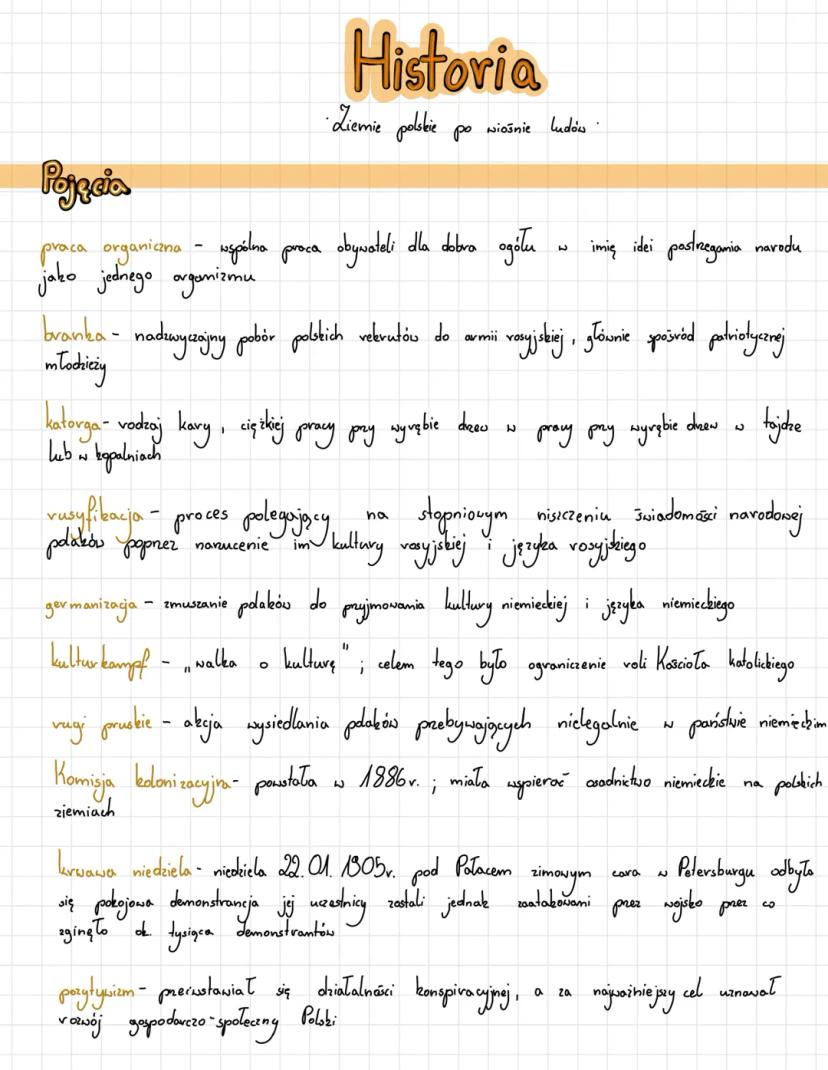 Historia
·Ziemie polskie po wiośnie ludów·
Pojęcia
praca organiczna - wspólna praca obywateli dla dobra ogółu w imię idei postrzegania narodu
jako jednego organizmu
branka - nadzwyczajny pobór polskich rekrutów do armii rosyjskiej, głównie spośród patriotycznej
młodzieży
katorga - rodzaj kary, ciężkiej pracy przy wyrębie drzew w pracy przy wyrębie drzew w tajdze
lub w kopalniach
rusyfikacja - proces polegający na stopniowym niszczeniu świadomości narodowej
polaków poprzez narzucenie im kultury rosyjskiej i języka rosyjskiego
germanizacja - zmuszanie polaków do przyjmowania kultury niemieckiej i języka niemieckiego
kulturkampf - „walka o kulturę"; celem tego było ograniczenie roli Kościoła katolickiego
rugi pruskie - akcja wysiedlania polaków przebywających nielegalnie w państwie niemieckim
Komisja kolonizacyjna - powstała w 1886r.; miała wspierać osadnictwo niemieckie na polskich
ziemiach
krwawa niedziela - niedziela 22.01.1905r. pod Pałacem zimowym cara w Petersburgu odbyła
się pokojowa demonstrancja jej uczestnicy zostali jednak zaatakowani przez wojsko przez co
zginęło ok. tysiąca demonstrantów
pozytywizm - przeciwstawiał się działalności konspiracyjnej, a za najważniejszy cel uznawał
rozwój gospodarczo-społeczny Polski